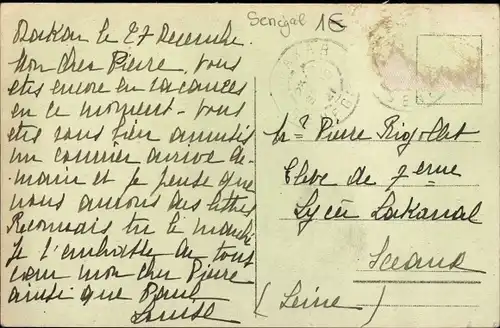 Senegal 1€
Dakar le 27 Decembre
Mon cher Pierre, vous
etes encore en vacances
en ce moment - vous
etes vous bien amusés
un courrier arrive de-
main et je pense que
nous aurons des lettres
Reconnais tu le marché
Je t'embrasse de tout
cœur mon cher Pierre
ainsi que Paul
Louise
Mr Pierre Rigollet
Eleve de 7eme
Lycée Lakanal
Sceaux
(Seine)